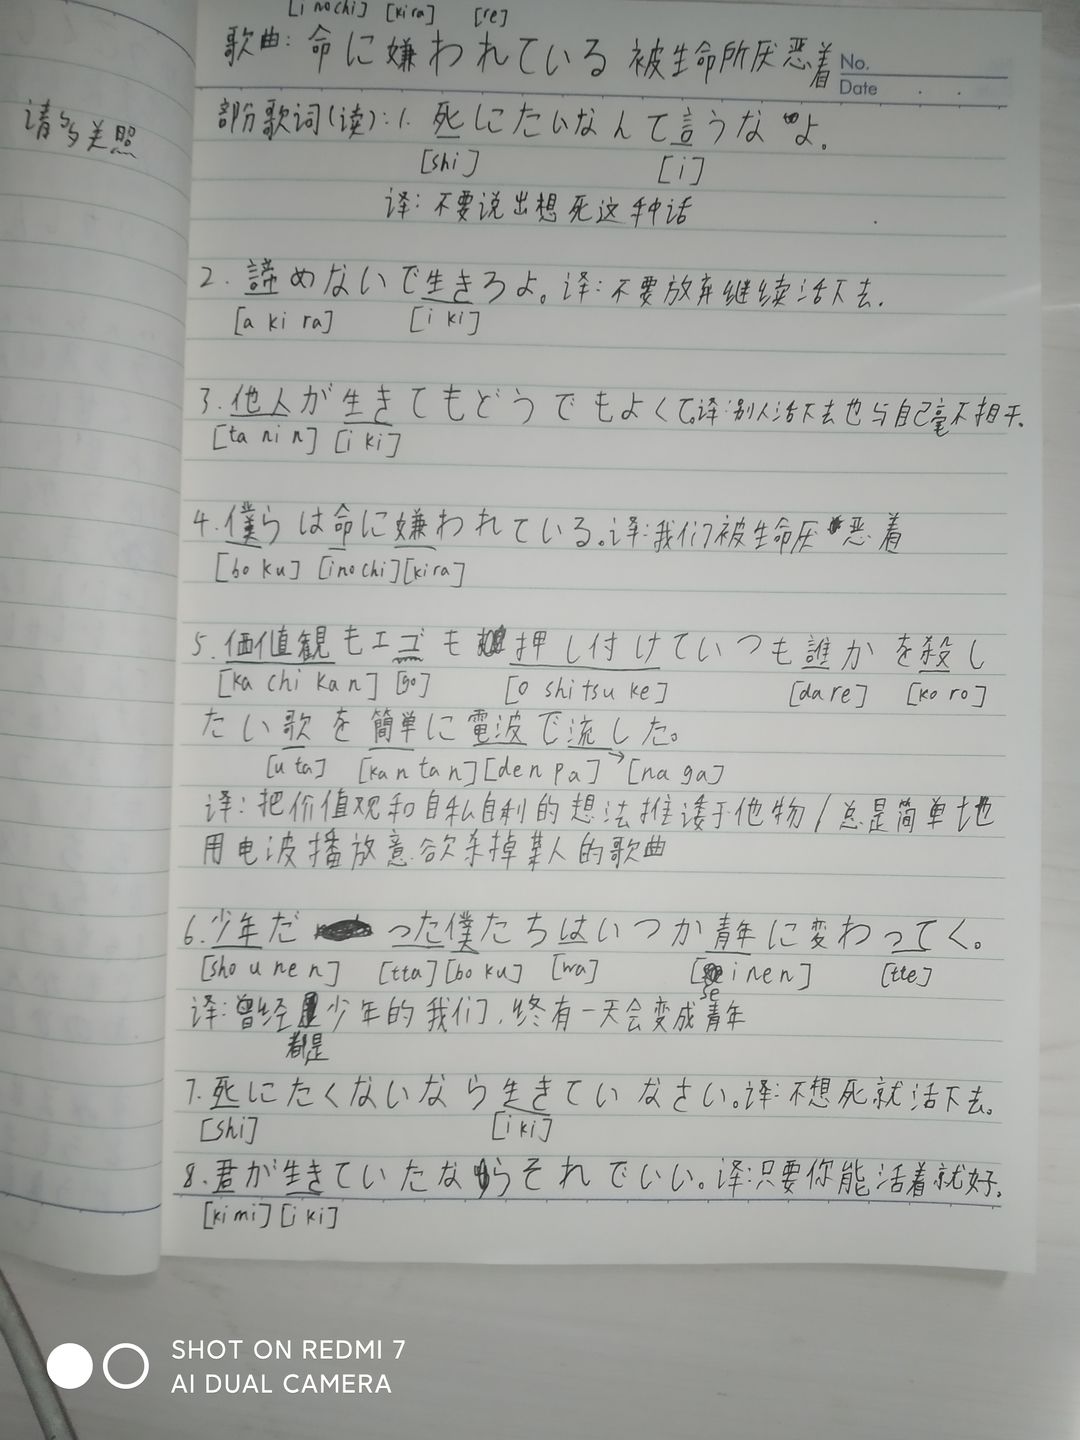 [inochi] [kira] [re]
歌曲:命に嫌われている 被生命所厌恶着
No.
Date
请多关照
部份歌词(读):1. 死にたいなんて言うなよ。
[shi] [i]
译:不要说出想死这种话
2.諦めないで生きろよ。译:不要放弃继续活下去.
[a ki ra] [i ki]
3.他人が生きてもどうでもよくて。译:别人活下去也与自己毫不相干.
[ta ni n] [i ki]
4.僕らは命に嫌われている。译:我们被生命厌恶着
[bo ku] [inochi][kira]
5.価値観もエゴも押し付けていつも誰かを殺し
[ka chi kan] [go] [o shi tsu ke] [da re] [ko ro]
たい歌を簡単に電波で流した。
[u ta] [kan tan][den pa]→[na ga]
译:把价值观和自私自利的想法推诿于他物/总是简单地
用电波播放意欲杀掉某人的歌曲
6.少年だった僕たちはいつか青年に変わってく。
[sho u ne n] [tta][bo ku] [wa] [se i nen] [tte]
译:曾经都是少年的我们,终有一天会变成青年
7.死にたくないなら生きていなさい。译:不想死就活下去。
[shi] [i ki]
8.君が生きていたならそれでいい。译:只要你能活着就好.
[ki mi][i ki]
SHOT ON REDMI 7
AI DUAL CAMERA